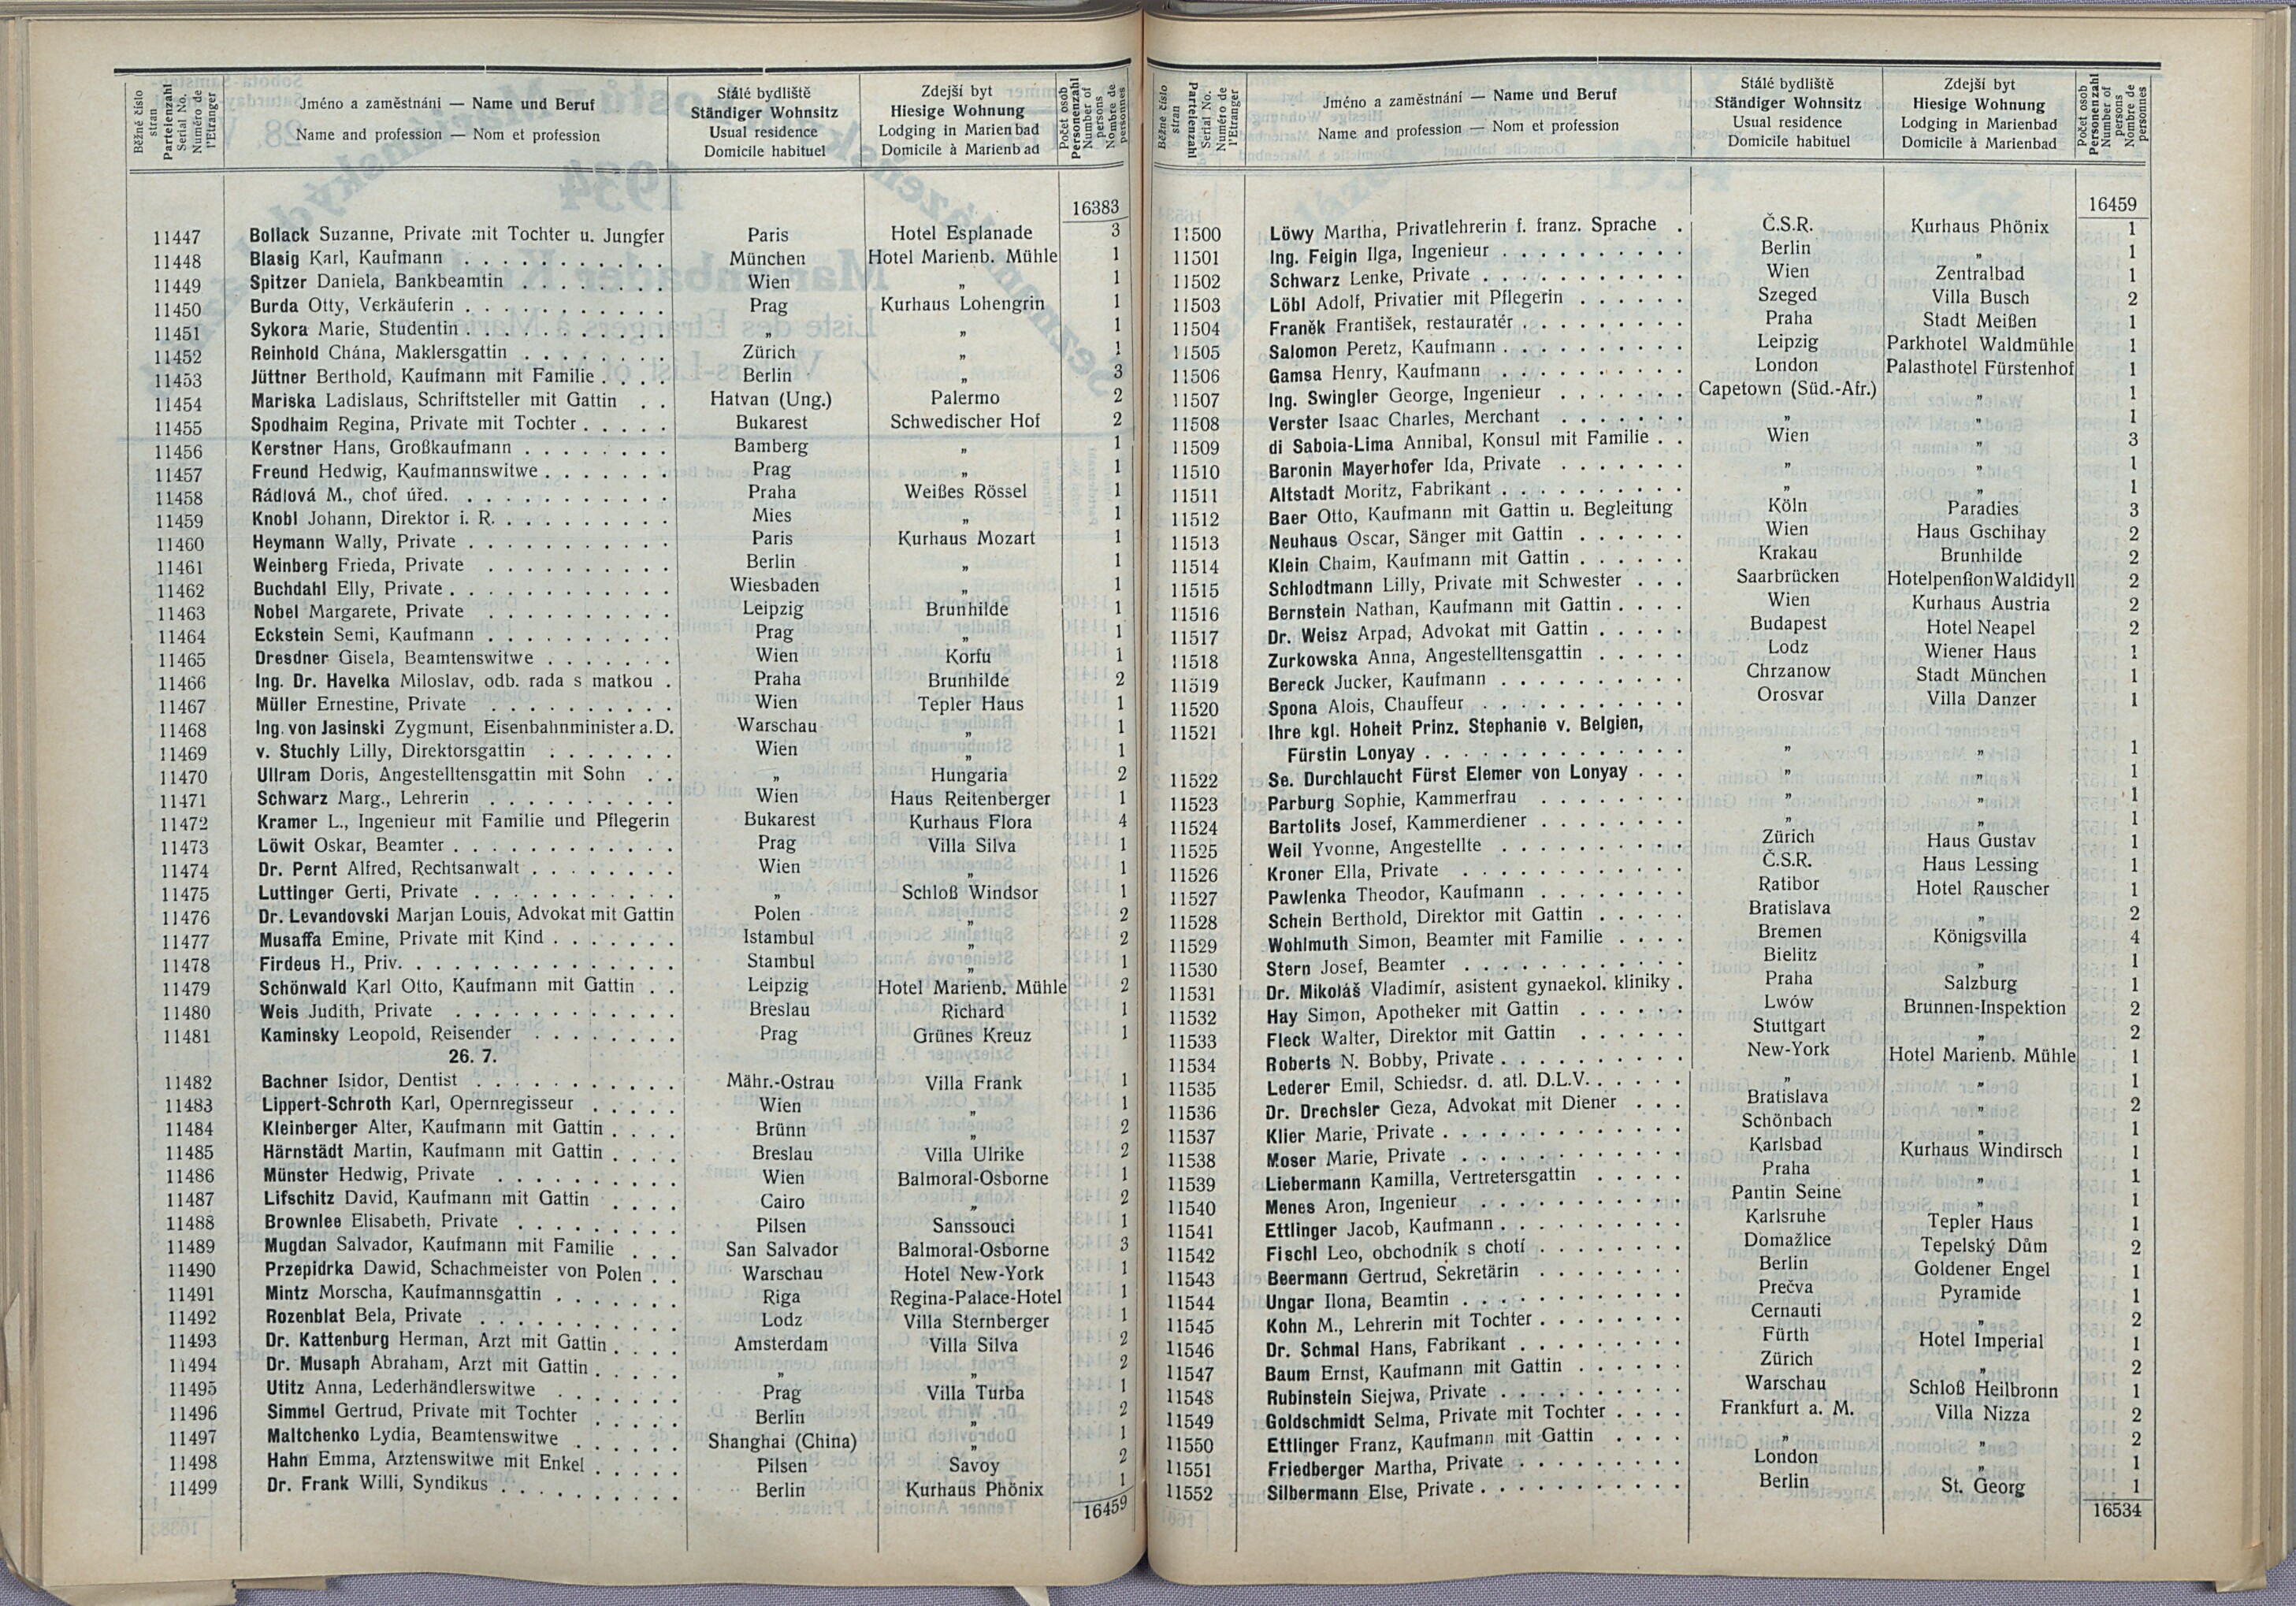 Běžné číslo stran
Parteienzahl
Serial No.
Numéro de l'Etranger
Jméno a zaměstnání — Name und Beruf
Name and profession — Nom et profession
Stálé bydliště
Ständiger Wohnsitz
Usual residence
Domicile habituel
Zdejší byt
Hiesige Wohnung
Lodging in Marienbad
Domicile à Marienbad
Počet osob
Personenzahl
Number of persons
Nombre de personnes
16383
11447 Bollack Suzanne, Private mit Tochter u. Jungfer Paris Hotel Esplanade 3
11448 Blasig Karl, Kaufmann . . . München Hotel Marienb. Mühle 1
11449 Spitzer Daniela, Bankbeamtin . . . Wien „ 1
11450 Burda Otty, Verkäuferin . . . Prag Kurhaus Lohengrin 1
11451 Sykora Marie, Studentin . . . „ „ 1
11452 Reinhold Chána, Maklersgattin . . . Zürich „ 1
11453 Jüttner Berthold, Kaufmann mit Familie . . . Berlin „ 3
11454 Mariska Ladislaus, Schriftsteller mit Gattin . . Hatvan (Ung.) Palermo 2
11455 Spodhaim Regina, Private mit Tochter . . . Bukarest Schwedischer Hof 2
11456 Kerstner Hans, Großkaufmann . . . Bamberg „ 1
11457 Freund Hedwig, Kaufmannswitwe . . . Prag „ 1
11458 Rádlová M., choť úřed. . . . Praha Weißes Rössel 1
11459 Knobl Johann, Direktor i. R. . . . Mies „ 1
11460 Heymann Wally, Private . . . Paris Kurhaus Mozart 1
11461 Weinberg Frieda, Private . . . Berlin „ 1
11462 Buchdahl Elly, Private . . . Wiesbaden „ 1
11463 Nobel Margarete, Private . . . Leipzig Brunhilde 1
11464 Eckstein Semi, Kaufmann . . . Prag „ 1
11465 Dresdner Gisela, Beamtenswitwe . . . Wien Korfu 1
11466 Ing. Dr. Havelka Miloslav, odb. rada s matkou . Praha Brunhilde 2
11467 Müller Ernestine, Private . . . Wien Tepler Haus 1
11468 Ing. von Jasinski Zygmunt, Eisenbahnminister a. D. Warschau „ 1
11469 v. Stuchly Lilly, Direktorsgattin . . . Wien „ 1
11470 Ullram Doris, Angestelltensgattin mit Sohn . . „ Hungaria 2
11471 Schwarz Marg., Lehrerin . . . Wien Haus Reitenberger 1
11472 Kramer L., Ingenieur mit Familie und Pflegerin Bukarest Kurhaus Flora 4
11473 Löwit Oskar, Beamter . . . Prag Villa Silva 1
11474 Dr. Pernt Alfred, Rechtsanwalt . . . Wien „ 1
11475 Luttinger Gerti, Private . . . „ Schloß Windsor 1
11476 Dr. Levandovski Marjan Louis, Advokat mit Gattin Polen „ 2
11477 Musaffa Emine, Private mit Kind . . . Istambul „ 2
11478 Firdeus H., Priv. . . . Stambul „ 1
11479 Schönwald Karl Otto, Kaufmann mit Gattin . . Leipzig Hotel Marienb. Mühle 2
11480 Weis Judith, Private . . . Breslau Richard 1
11481 Kaminsky Leopold, Reisender . . . Prag Grünes Kreuz 1
26. 7.
11482 Bachner Isidor, Dentist . . . Mähr.-Ostrau Villa Frank 1
11483 Lippert-Schroth Karl, Opernregisseur . . . Wien „ 1
11484 Kleinberger Alter, Kaufmann mit Gattin . . . Brünn „ 2
11485 Härnstädt Martin, Kaufmann mit Gattin . . . Breslau Villa Ulrike 2
11486 Münster Hedwig, Private . . . Wien Balmoral-Osborne 1
11487 Lifschitz David, Kaufmann mit Gattin . . . Cairo „ 2
11488 Brownlee Elisabeth, Private . . . Pilsen Sanssouci 1
11489 Mugdan Salvador, Kaufmann mit Familie . . . San Salvador Balmoral-Osborne 3
11490 Przepidrka Dawid, Schachmeister von Polen . . Warschau Hotel New-York 1
11491 Mintz Morscha, Kaufmannsgattin . . . Riga Regina-Palace-Hotel 1
11492 Rozenblat Bela, Private . . . Lodz Villa Sternberger 1
11493 Dr. Kattenburg Herman, Arzt mit Gattin . . . Amsterdam Villa Silva 2
11494 Dr. Musaph Abraham, Arzt mit Gattin . . . „ „ 2
11495 Utitz Anna, Lederhändlerswitwe . . . Prag Villa Turba 1
11496 Simmel Gertrud, Private mit Tochter . . . Berlin „ 2
11497 Maltchenko Lydia, Beamtenswitwe . . . Shanghai (China) „ 1
11498 Hahn Emma, Arztenswitwe mit Enkel . . . Pilsen Savoy 2
11499 Dr. Frank Willi, Syndikus . . . Berlin Kurhaus Phönix 1
16459
Běžne číslo stran
Parteienzahl
Serial No.
Numéro de l'Etranger
Jméno a zaměstnání — Name und Beruf
Name and profession — Nom et profession
Stálé bydliště
Ständiger Wohnsitz
Usual residence
Domicile habituel
Zdejší byt
Hiesige Wohnung
Lodging in Marienbad
Domicile à Marienbad
Počet osob
Personenzahl
Number of persons
Nombre de personnes
16459
11500 Löwy Martha, Privatlehrerin f. franz. Sprache . Č.S.R. Kurhaus Phönix 1
11501 Ing. Feigin Ilga, Ingenieur . . . Berlin „ 1
11502 Schwarz Lenke, Private . . . Wien Zentralbad 1
11503 Löbl Adolf, Privatier mit Pflegerin . . . Szeged Villa Busch 2
11504 Franěk František, restauratér . . . Praha Stadt Meißen 1
11505 Salomon Peretz, Kaufmann . . . Leipzig Parkhotel Waldmühle 1
11506 Gamsa Henry, Kaufmann . . . London Palasthotel Fürstenhof 1
11507 Ing. Swingler George, Ingenieur . . . Capetown (Süd.-Afr.) „ 1
11508 Verster Isaac Charles, Merchant . . . „ „ 1
11509 di Saboia-Lima Annibal, Konsul mit Familie . . Wien „ 3
11510 Baronin Mayerhofer Ida, Private . . . „ „ 1
11511 Altstadt Moritz, Fabrikant . . . „ „ 1
11512 Baer Otto, Kaufmann mit Gattin u. Begleitung Köln Paradies 3
11513 Neuhaus Oscar, Sänger mit Gattin . . . Wien Haus Gschihay 2
11514 Klein Chaim, Kaufmann mit Gattin . . . Krakau Brunhilde 2
11515 Schlodtmann Lilly, Private mit Schwester . . . Saarbrücken Hotelpension Waldidyll 2
11516 Bernstein Nathan, Kaufmann mit Gattin . . . Wien Kurhaus Austria 2
11517 Dr. Weisz Arpad, Advokat mit Gattin . . . Budapest Hotel Neapel 2
11518 Zurkowska Anna, Angestelltensgattin . . . Lodz Wiener Haus 1
11519 Bereck Jucker, Kaufmann . . . Chrzanow Stadt München 1
11520 Spona Alois, Chauffeur . . . Orosvar Villa Danzer 1
11521 Ihre kgl. Hoheit Prinz. Stephanie v. Belgien,
Fürstin Lonyay . . . „ „ 1
11522 Se. Durchlaucht Fürst Elemer von Lonyay . . . „ „ 1
11523 Parburg Sophie, Kammerfrau . . . „ „ 1
11524 Bartolits Josef, Kammerdiener . . . „ „ 1
11525 Weil Yvonne, Angestellte . . . Zürich Haus Gustav 1
11526 Kroner Ella, Private . . . Č.S.R. Haus Lessing 1
11527 Pawlenka Theodor, Kaufmann . . . Ratibor Hotel Rauscher 1
11528 Schein Berthold, Direktor mit Gattin . . . Bratislava „ 2
11529 Wohlmuth Simon, Beamter mit Familie . . . Bremen Königsvilla 4
11530 Stern Josef, Beamter . . . Bielitz „ 1
11531 Dr. Mikoláš Vladimír, asistent gynaekol. kliniky . Praha Salzburg 1
11532 Hay Simon, Apotheker mit Gattin . . . Lwów Brunnen-Inspektion 2
11533 Fleck Walter, Direktor mit Gattin . . . Stuttgart „ 2
11534 Roberts N. Bobby, Private . . . New-York Hotel Marienb. Mühle 1
11535 Lederer Emil, Schiedsr. d. atl. D.L.V. . . . „ „ 1
11536 Dr. Drechsler Geza, Advokat mit Diener . . . Bratislava „ 2
11537 Klier Marie, Private . . . Schönbach „ 1
11538 Moser Marie, Private . . . Karlsbad Kurhaus Windirsch 1
11539 Liebermann Kamilla, Vertretersgattin . . . Praha „ 1
11540 Menes Aron, Ingenieur . . . Pantin Seine „ 1
11541 Ettlinger Jacob, Kaufmann . . . Karlsruhe Tepler Haus 1
11542 Fischl Leo, obchodník s chotí . . . Domažlice Tepelský Dům 2
11543 Beermann Gertrud, Sekretärin . . . Berlin Goldener Engel 1
11544 Ungar Ilona, Beamtin . . . Prečva Pyramide 1
11545 Kohn M., Lehrerin mit Tochter . . . Cernauti „ 2
11546 Dr. Schmal Hans, Fabrikant . . . Fürth Hotel Imperial 1
11547 Baum Ernst, Kaufmann mit Gattin . . . Zürich „ 2
11548 Rubinstein Siejwa, Private . . . Warschau Schloß Heilbronn 1
11549 Goldschmidt Selma, Private mit Tochter . . . Frankfurt a. M. Villa Nizza 2
11550 Ettlinger Franz, Kaufmann mit Gattin . . . „ „ 2
11551 Friedberger Martha, Private . . . London „ 1
11552 Silbermann Else, Private . . . Berlin St. Georg 1
16534